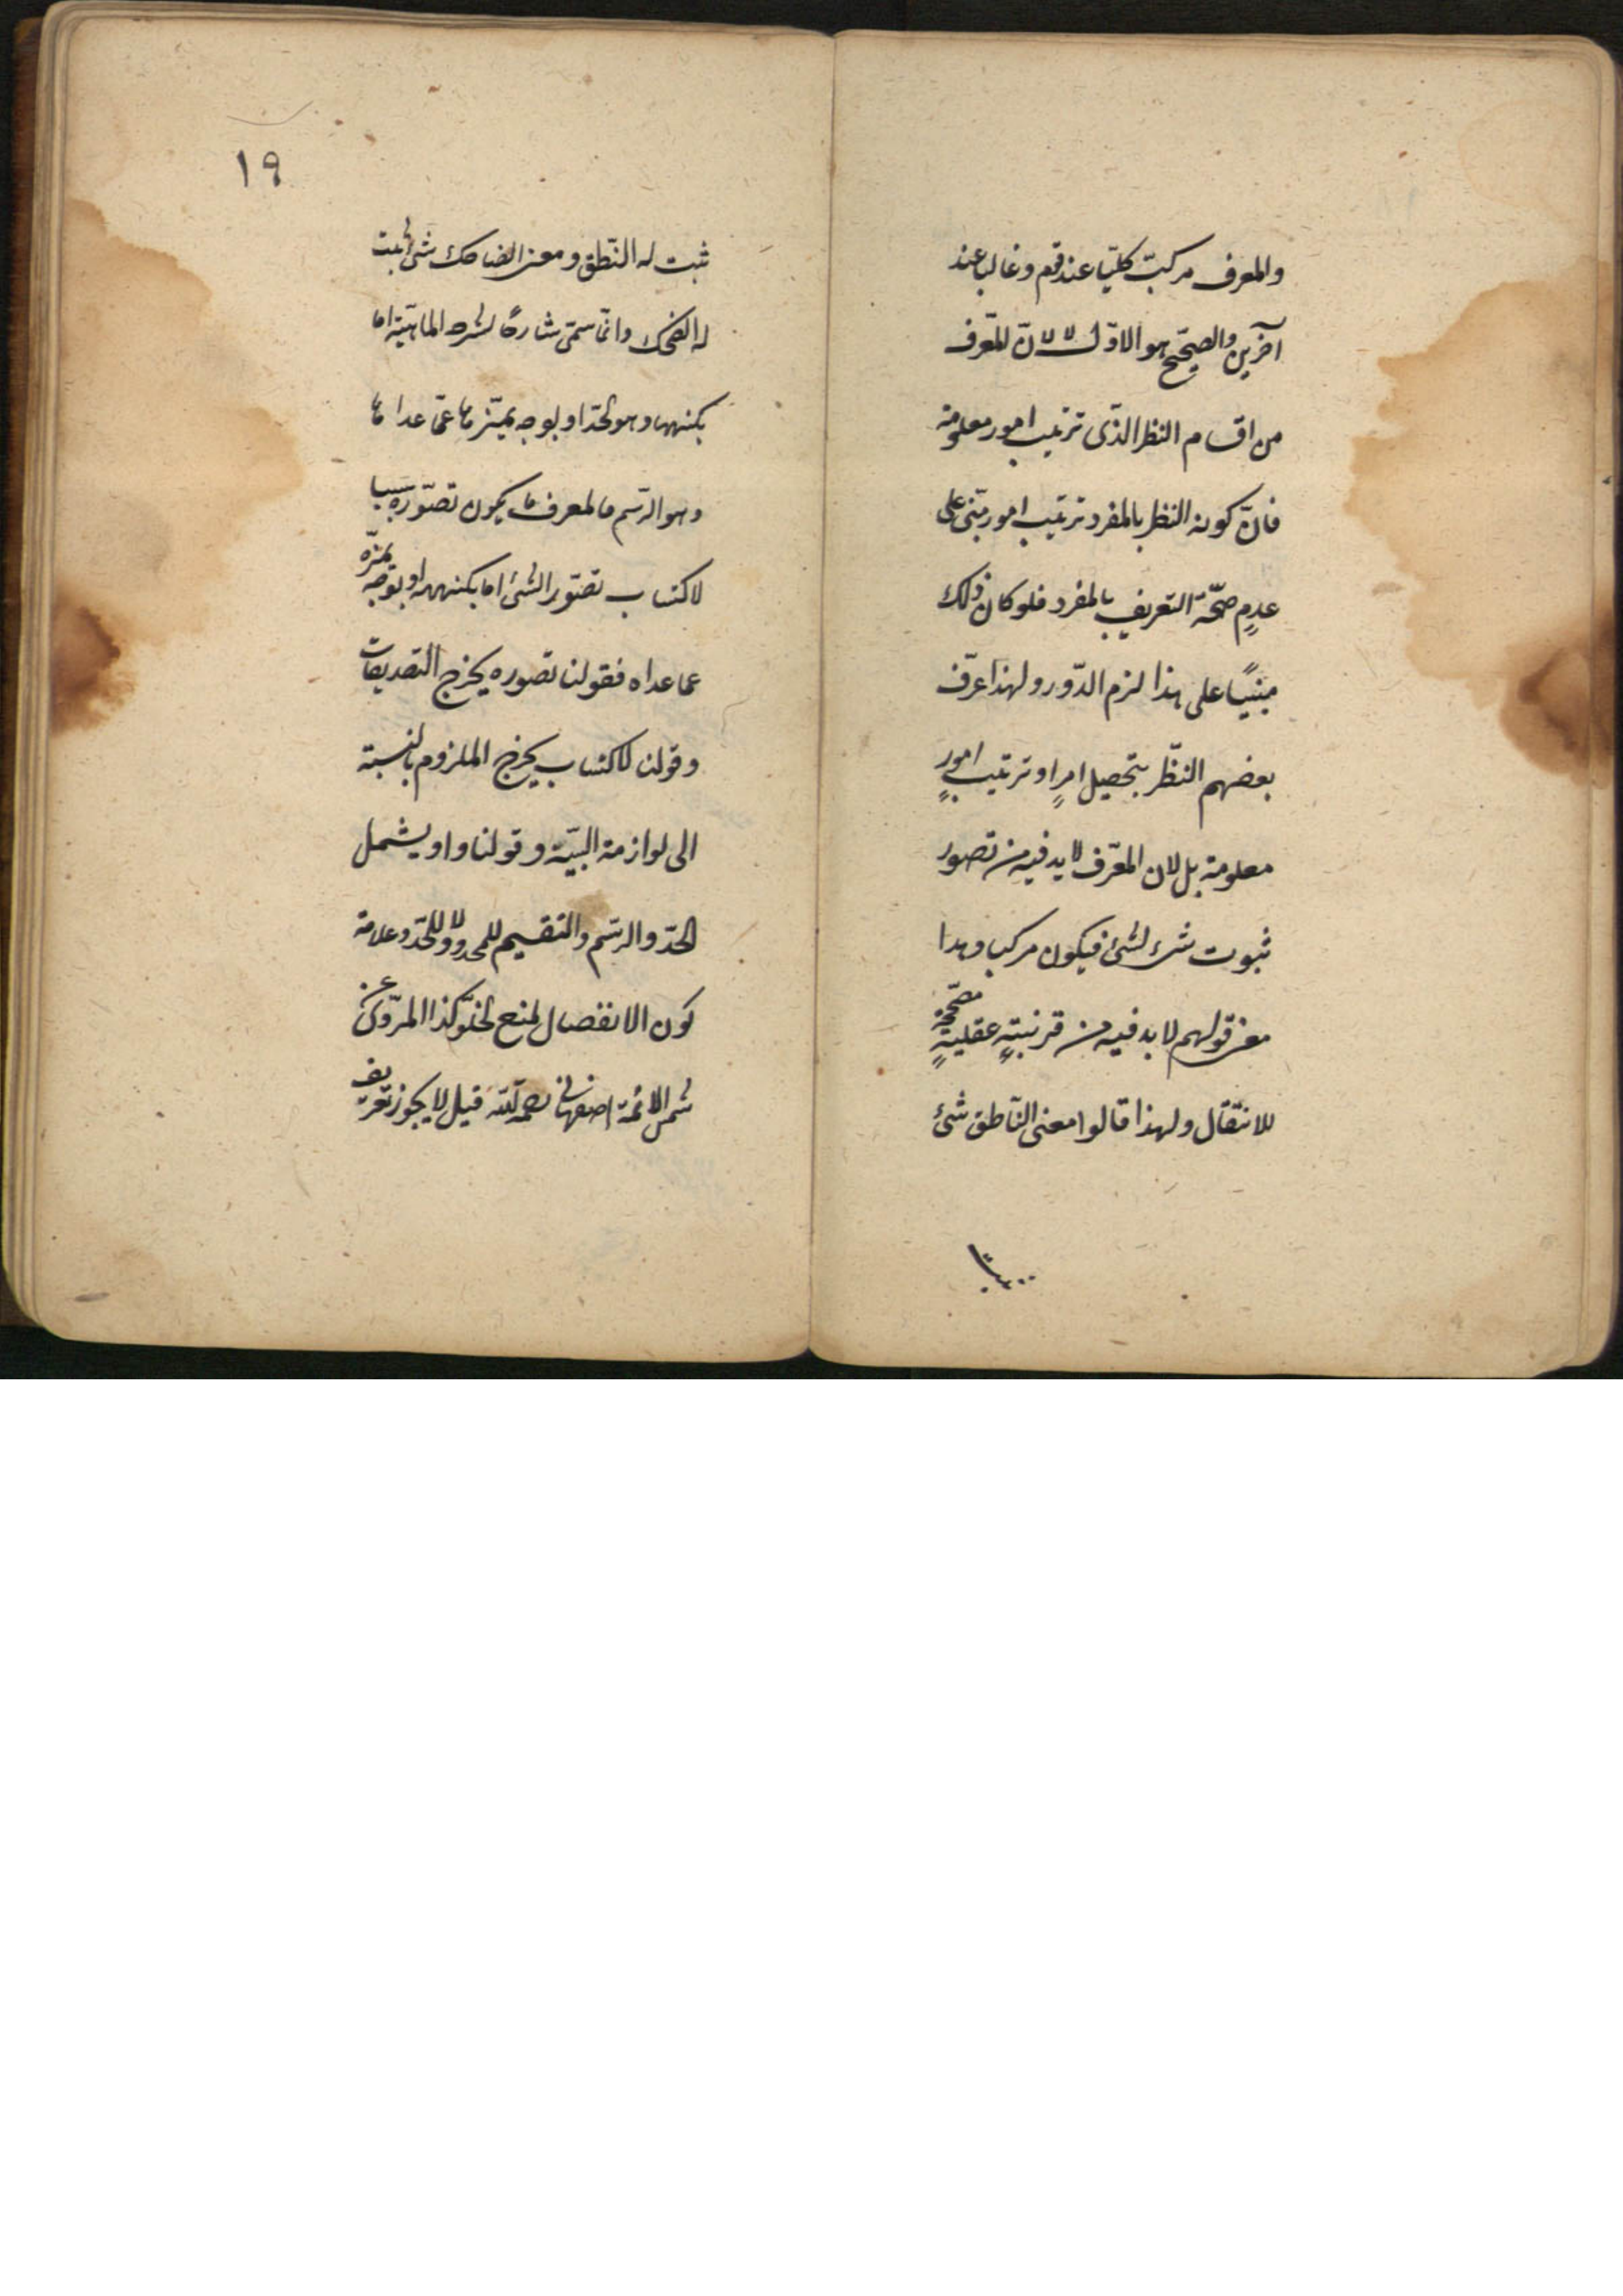 والمعرف مركبّ كليّا عند قوم وغالبا عند
آخرين والصحّيح هو الاوّل لا لانّ المعّرف
من اقسام النظر الذّى ترتيب امور معلومة
فانّ كون النظر بالمفرد ترتيب امور مبّنى على
عدمٍ صحّة التعريف بالمفرد فلو كان ذلك
مبنيًا على هذا لزم الدّور ولهذا عرّف
بعضهم النظّر بتحصيل امرٍ او ترتيب امورٍ
معلومة بل لان المعّرف لا بد فيه من تصور
ثبوت شئ لشئ فيكون مركبا وهذا
معنى قولهم لا بد فيه من قرينةٍ عقليةٍ مصّححة
للانتّقال ولهذا قالوا معنى النّاطق شئ
ثبت
١٩
ثبت له النّطق ومعنى الضاحك شئ ثبت
له الضحك وانّما سمّى شارحًا لشرحه الماهيّة اما
بكنهها وهو الحّد او بوجه يميّزها عمّا عداها
وهو الرّسم فالمعرف ما يكون تصوّره سببا
لاكتساب تصوّر الشئ اما بكنهه او بوجه يميّزه
عما عداه فقولنا تصوره يخرج التصديقات
وقولنا لاكتساب يخرج الملزوم بالنسبة
الى لوازمه البيّنة وقولنا او يشمل
الحدّ والرسّم والتقسيم للمحدود لا للحدّ وعلامة
كون الانفصال لمنع الخلّو كذا المروّى عن
شمس الائمة اصفهانى رحمه الله قيل لا يجوز تعريف